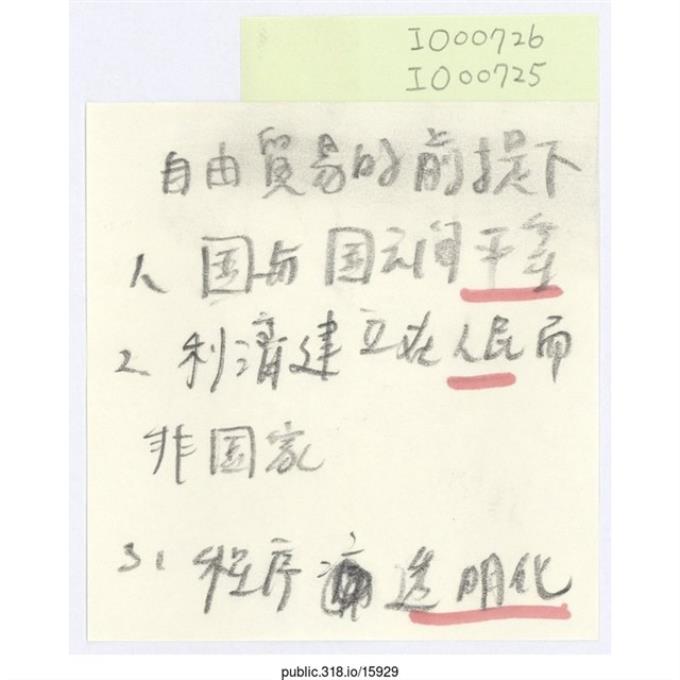 IO00726
IO00725
自由貿易的前提下
1、国与国之间平等
2、利濟建立在人民而
非国家
3、程序 透明化
public.318.io/15929